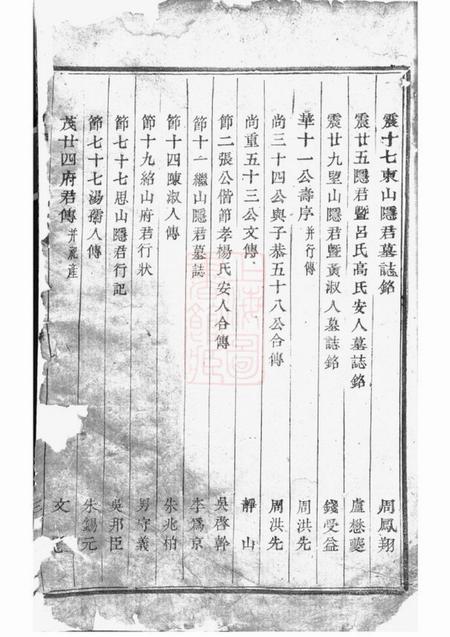 震十七東山隱君墓誌銘 周鳳翔
震廿五隱君暨呂氏高氏安人墓誌銘 盧懋
震廿九望山隱君暨黃淑人墓誌銘 錢受益
華十一公壽序并行傳 周洪先
尚三十四公與子恭五十八公合傳 周洪先
尚重五十三公文傳 靜山
節二張公偕節孝楊氏安人合傳 吳啓幹
節十一繼山隱君墓誌 李爲京
節十四陳淑人傳 朱兆柏
節十九紹山府君行狀 男守義
節七十七思山隱君行記 吳邦臣
節七十七湯孺人傳 朱錫元
茂廿四府君傳并祀產 文